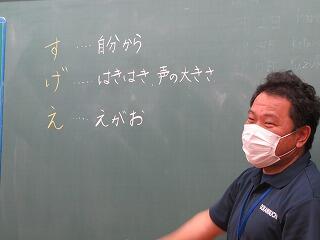 す‥‥自分から
げ‥‥はきはき,声の大きさ
え‥‥えがお